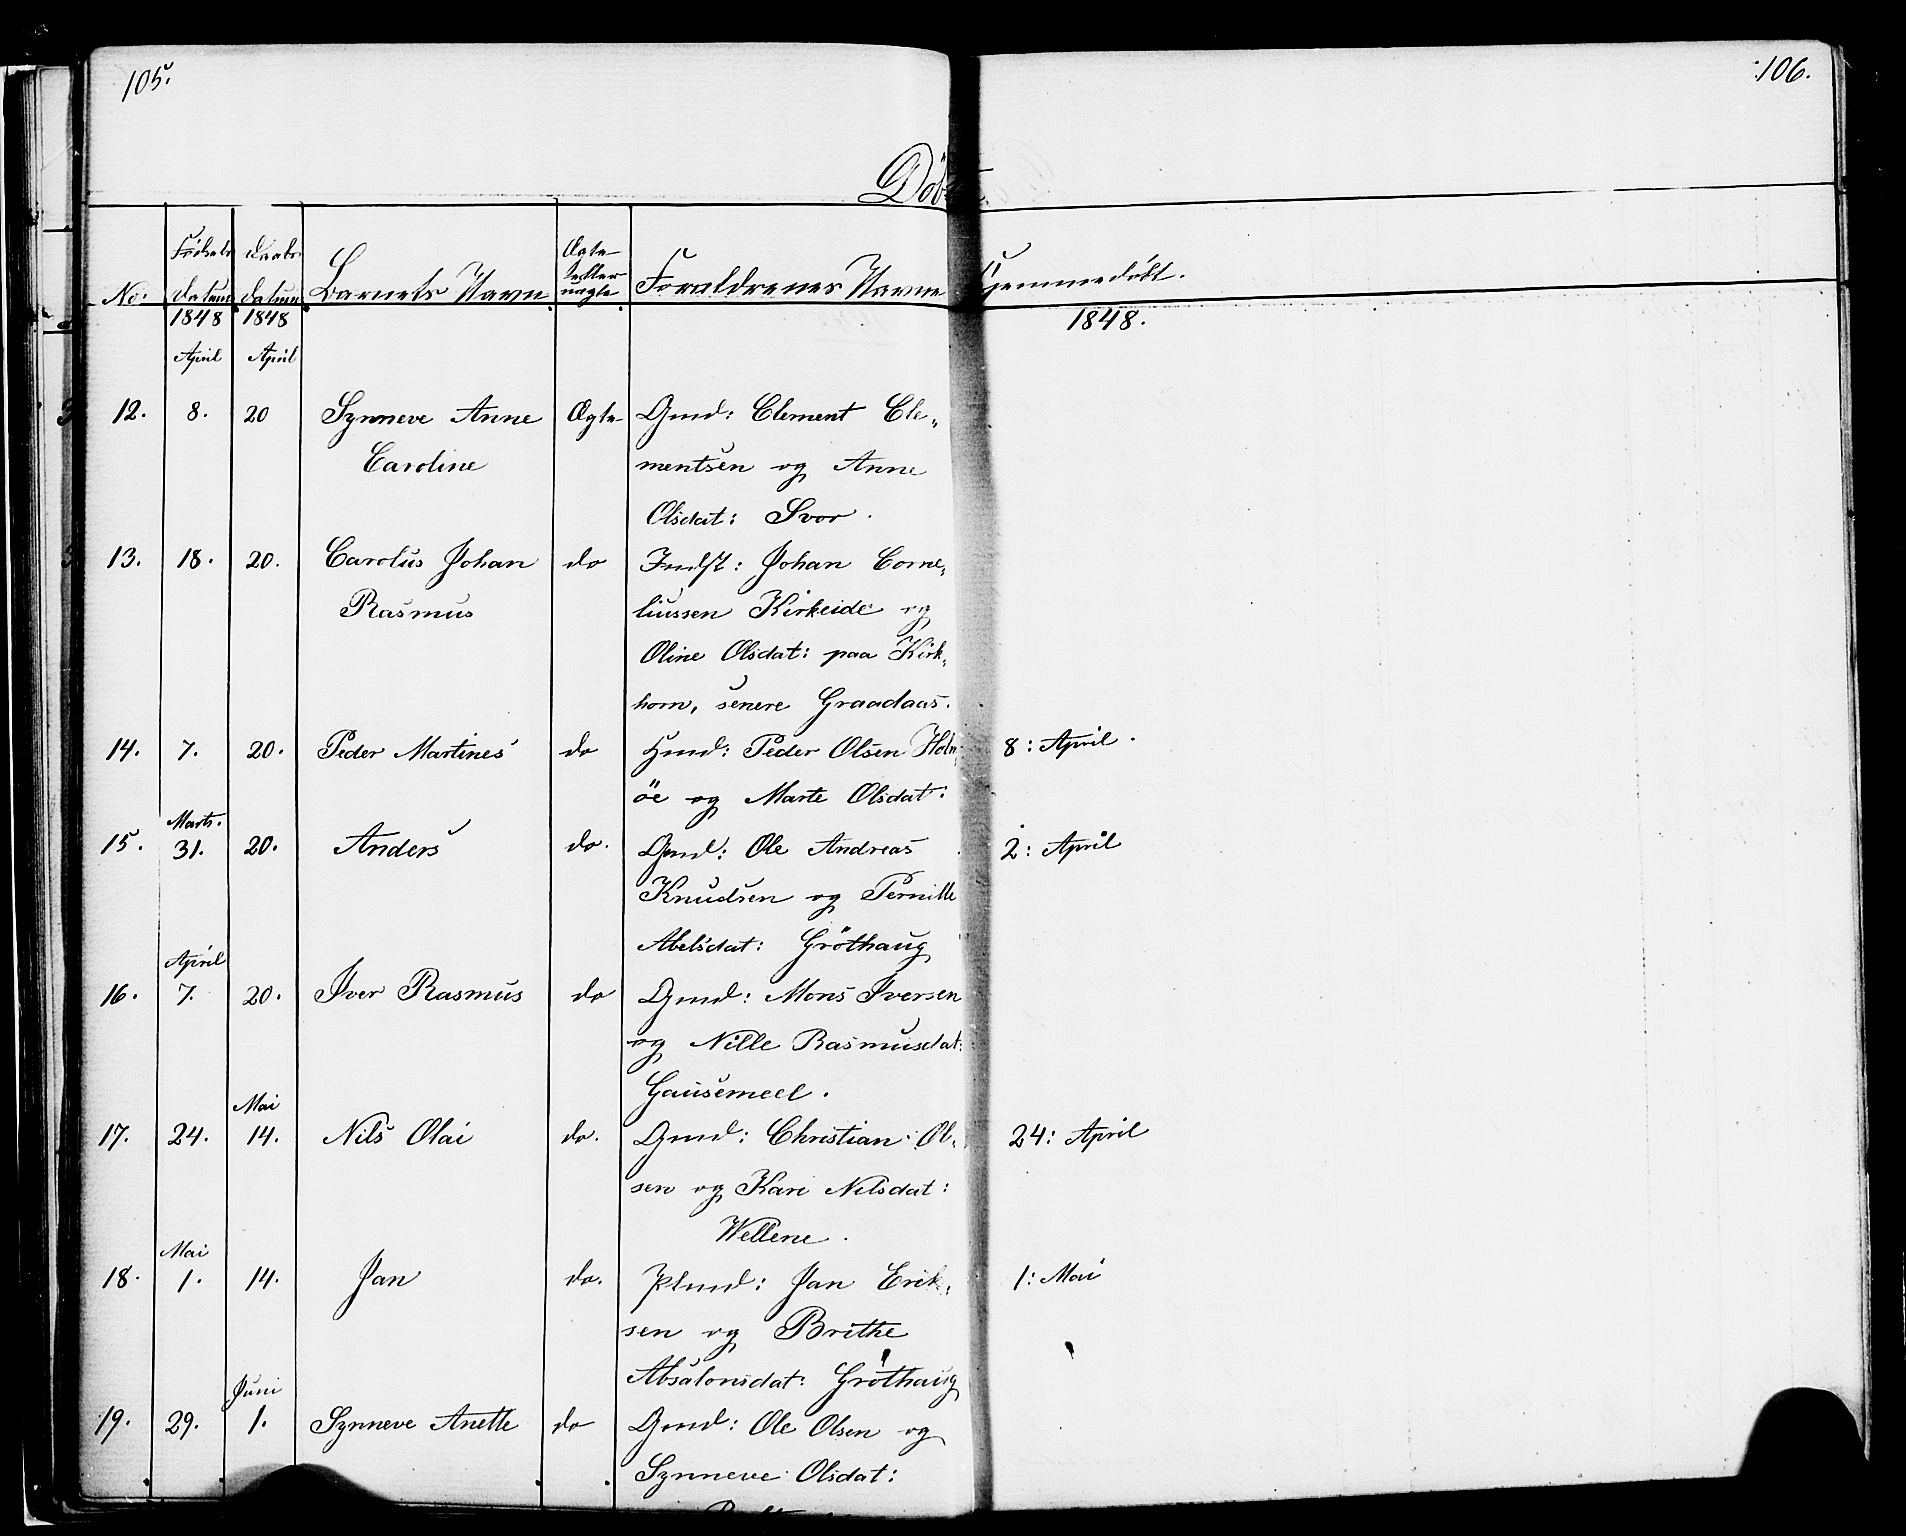 105.
106.
Döbte.
No:
Födsels datum
Daabs datum
Barnets Navn
Ægte eller uægte
Forældrenes Navne
Hjemmedöbt.
1848 1848
1848.
April April
12. 8. 20 Synneve Anne Ægte Gmd: Clement Cle„
Caroline mentsen og Anne
Olsdat: Svor.
13. 18. 20. Carolus Johan do Indst: Johan Corne„
Rasmus liussen Kirkeide og
Oline Olsdat: paa Kirk„
horn, senere Graadaas.
14. 7. 20. Peder Martines do Hmd: Peder Olsen Holm„ 8: April.
öe og Marte Olsdat:
Marts.
15. 31. 20. Anders do. Gmd: Ole Andreas 2: April
Knudsen og Pernille
Abelsdat: Gröthaug
April
16. 7. 20. Iver Rasmus do Gmd: Mons Iversen
og Nille Rasmusdat:
Gausemeel.
Mai
17. 24. 14. Nils Olai do. Gmd: Christian Ol„ 24: April
sen og Kari Nilsdat:
Wellene.
Mai
18. 1. 14. Jan do. Plmd: Jan Erik„ 1: Mai
sen og Brithe
Absalonsdat: Gröthaug
Juni
19. 29. 1. Synneve Anette do Gmd: Ole Olsen og
Synneve Olsdat: